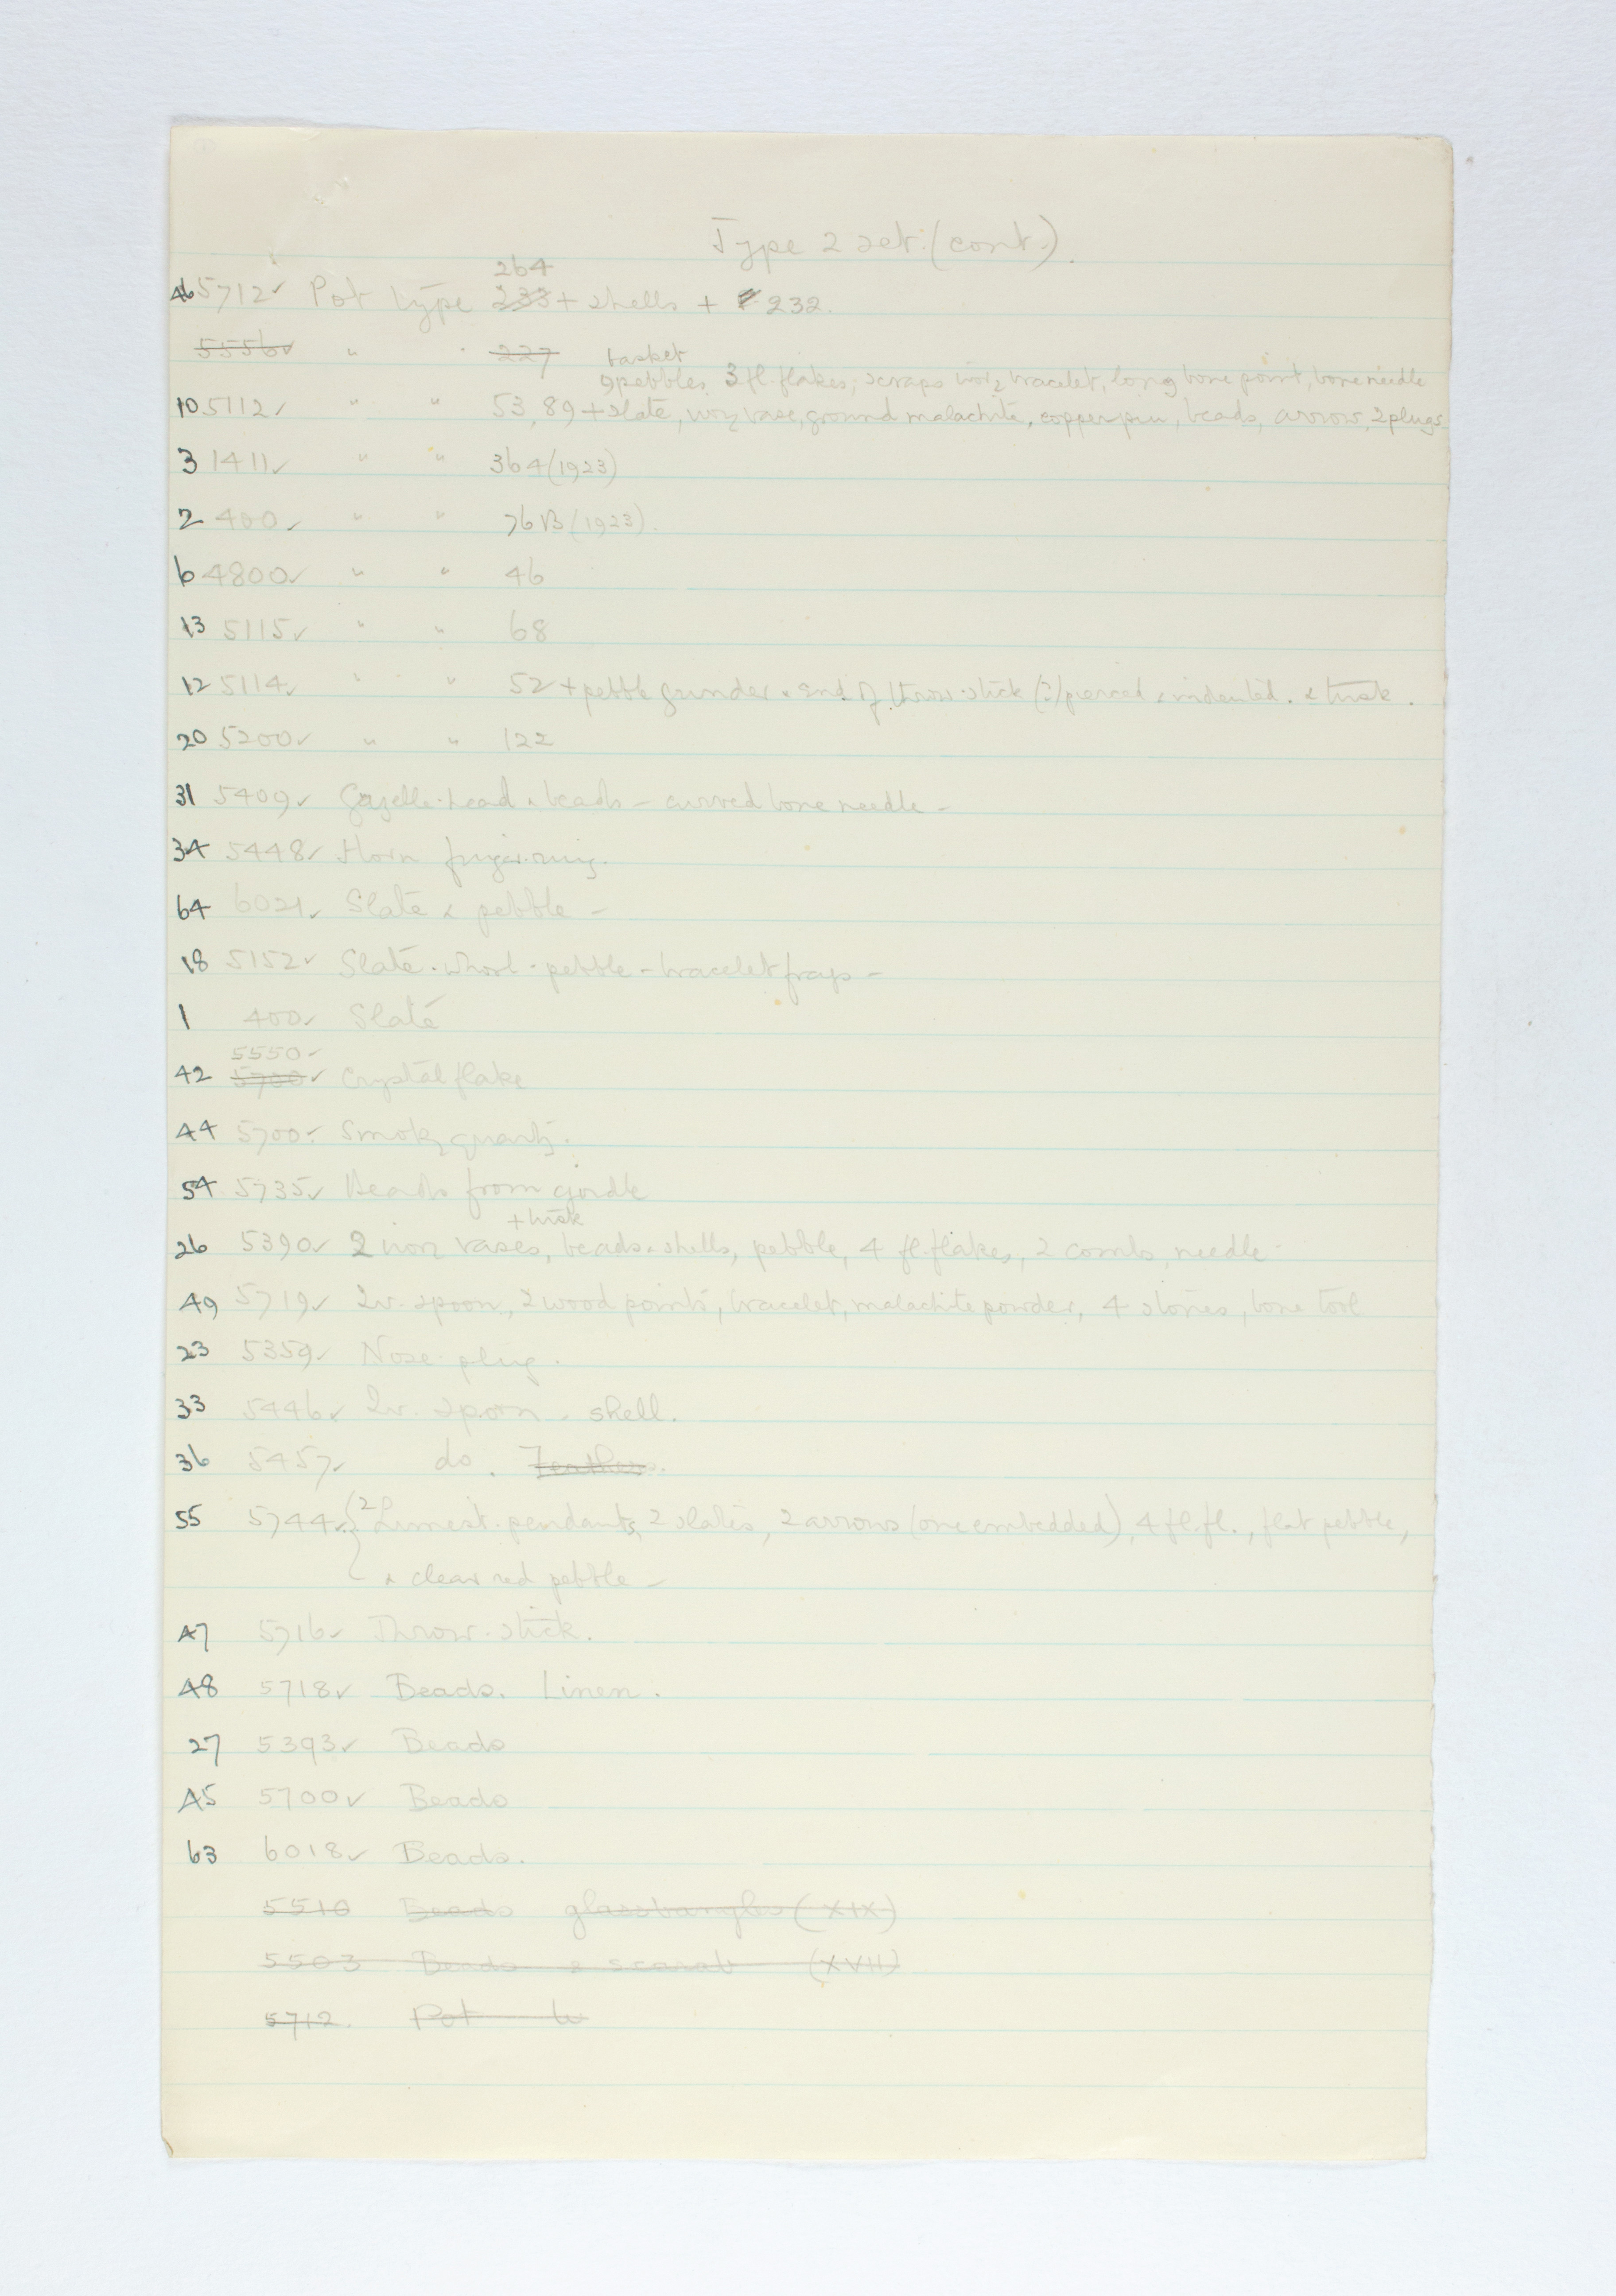 Type 2 set. (cont.).
264
46 5712✓ Pot type 233 + shells + 232.
5556✓ " " 227 basket
9 pebbles, 3 fl. flakes, scraps ivory bracelet, long bone point, bone needle
10 5112✓ " " 53, 89 + slate, ivory vase, ground malachite, copper pin, beads, arrow, 2 plugs
3 1411✓ " " 364 (1923)
2 400✓ " " 76B (1923).
6 4800✓ " " 46
13 5115✓ " " 68
12 5114✓ " " 52 + pebble grinder & end of throw-stick (?) pierced & indented. & tusk.
20 5200✓ " " 122
31 5409✓ Gazelle-head & beads - curved bone needle -
34 5448✓ Horn finger-ring.
64 6021✓ Slate & pebble -
18 5152✓ Slate - whorl - pebble - bracelet frags -
1 400✓ Slate
5550✓
42 5700✓ Crystal flake
44 5700✓ Smoky quartz.
54 5735✓ Beads from girdle
+ tusk
26 5390✓ 2 ivory vases, beads & shells, pebble, 4 fl. flakes, 2 combs, needle -
49 5719✓ Iv. spoon, 2 wood points, bracelet, malachite powder, 4 stones, bone tool
23 5359✓ Nose-plug.
33 5446✓ Iv. spoon - shell.
36 5457✓ do. Feathers.
55 5744✓ (2 Limest. pendants, 2 slates, 2 arrows (one embedded), 4 fl. fl., flat pebble,
& clear red pebble -
47 5716✓ Throw-stick.
48 5718✓ Beads. Linen.
27 5393✓ Beads
45 5700✓ Beads
63 6018✓ Beads.
5510 Beads glass bangles (XIX)
5503 Beads & scarab (XVIII)
5712. Pot